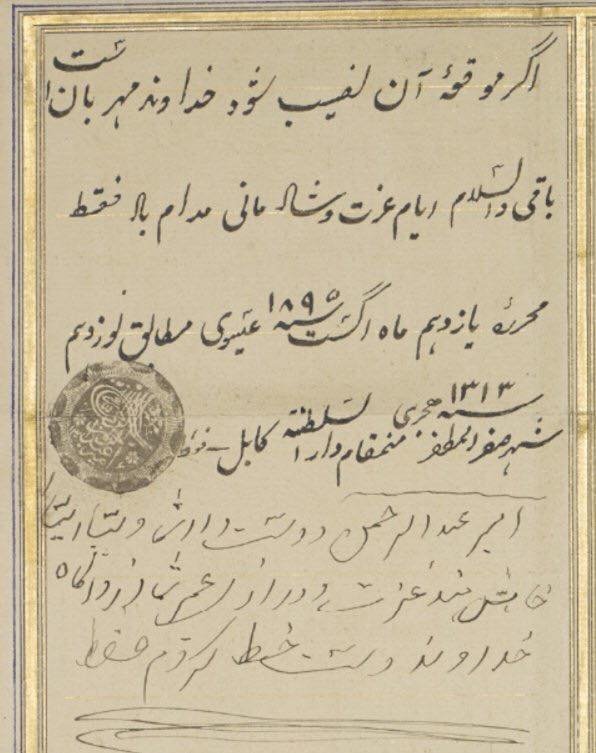 اگر موقعهٔ آن نصیب شود خداوند مهربان است
باقی والسلام ایام عزت و شادمانی مدام باد فقط
محررهٔ یازدهم ماه اگست سنه ۱۸۹۵ عیسوی مطابق نوزدهم
شهر صفر المظفر سنه ۱۳۱۳ هجری مقام دارالسلطنته کابل فقط
امیر عبدالرحمن دوست
عزت و دراز عمر شما از درگاه
خداوند دست خط کردم فقط